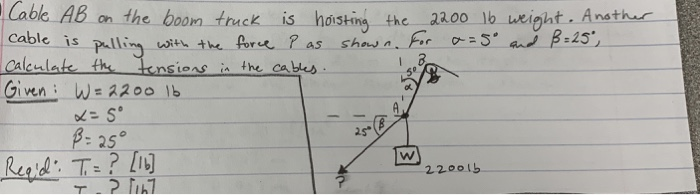 Cable AB on the boom truck is hoisting the 2200 lb weight. Another
cable is pulling with the force P as shown. For α=5° and β=25°,
calculate the tensions in the cables.
Given: W=2200 lb
α=5°
β=25°
Req'd: T₁=? [lb]
T =? [lb]
B
5°
α
A
25° β
W
2200 lb
P